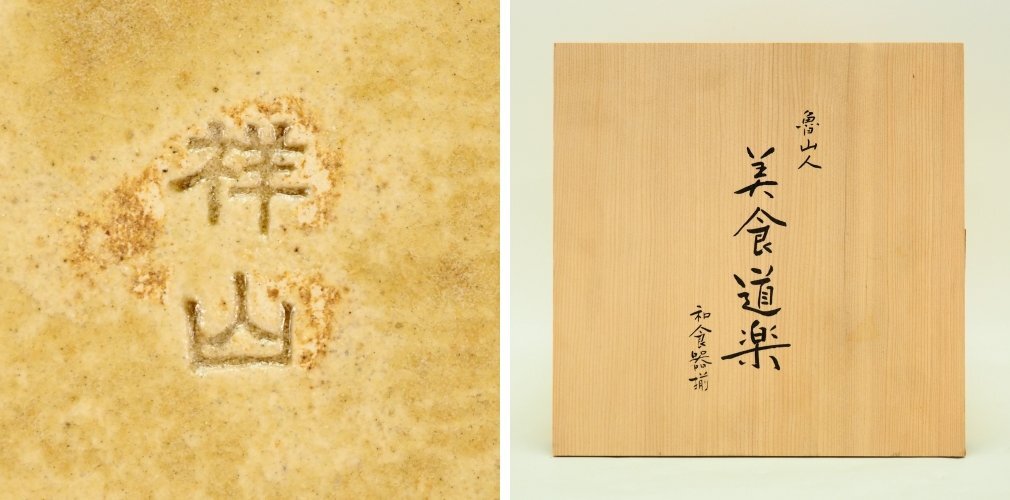 祥山
魯山人
美食道楽
和食器揃